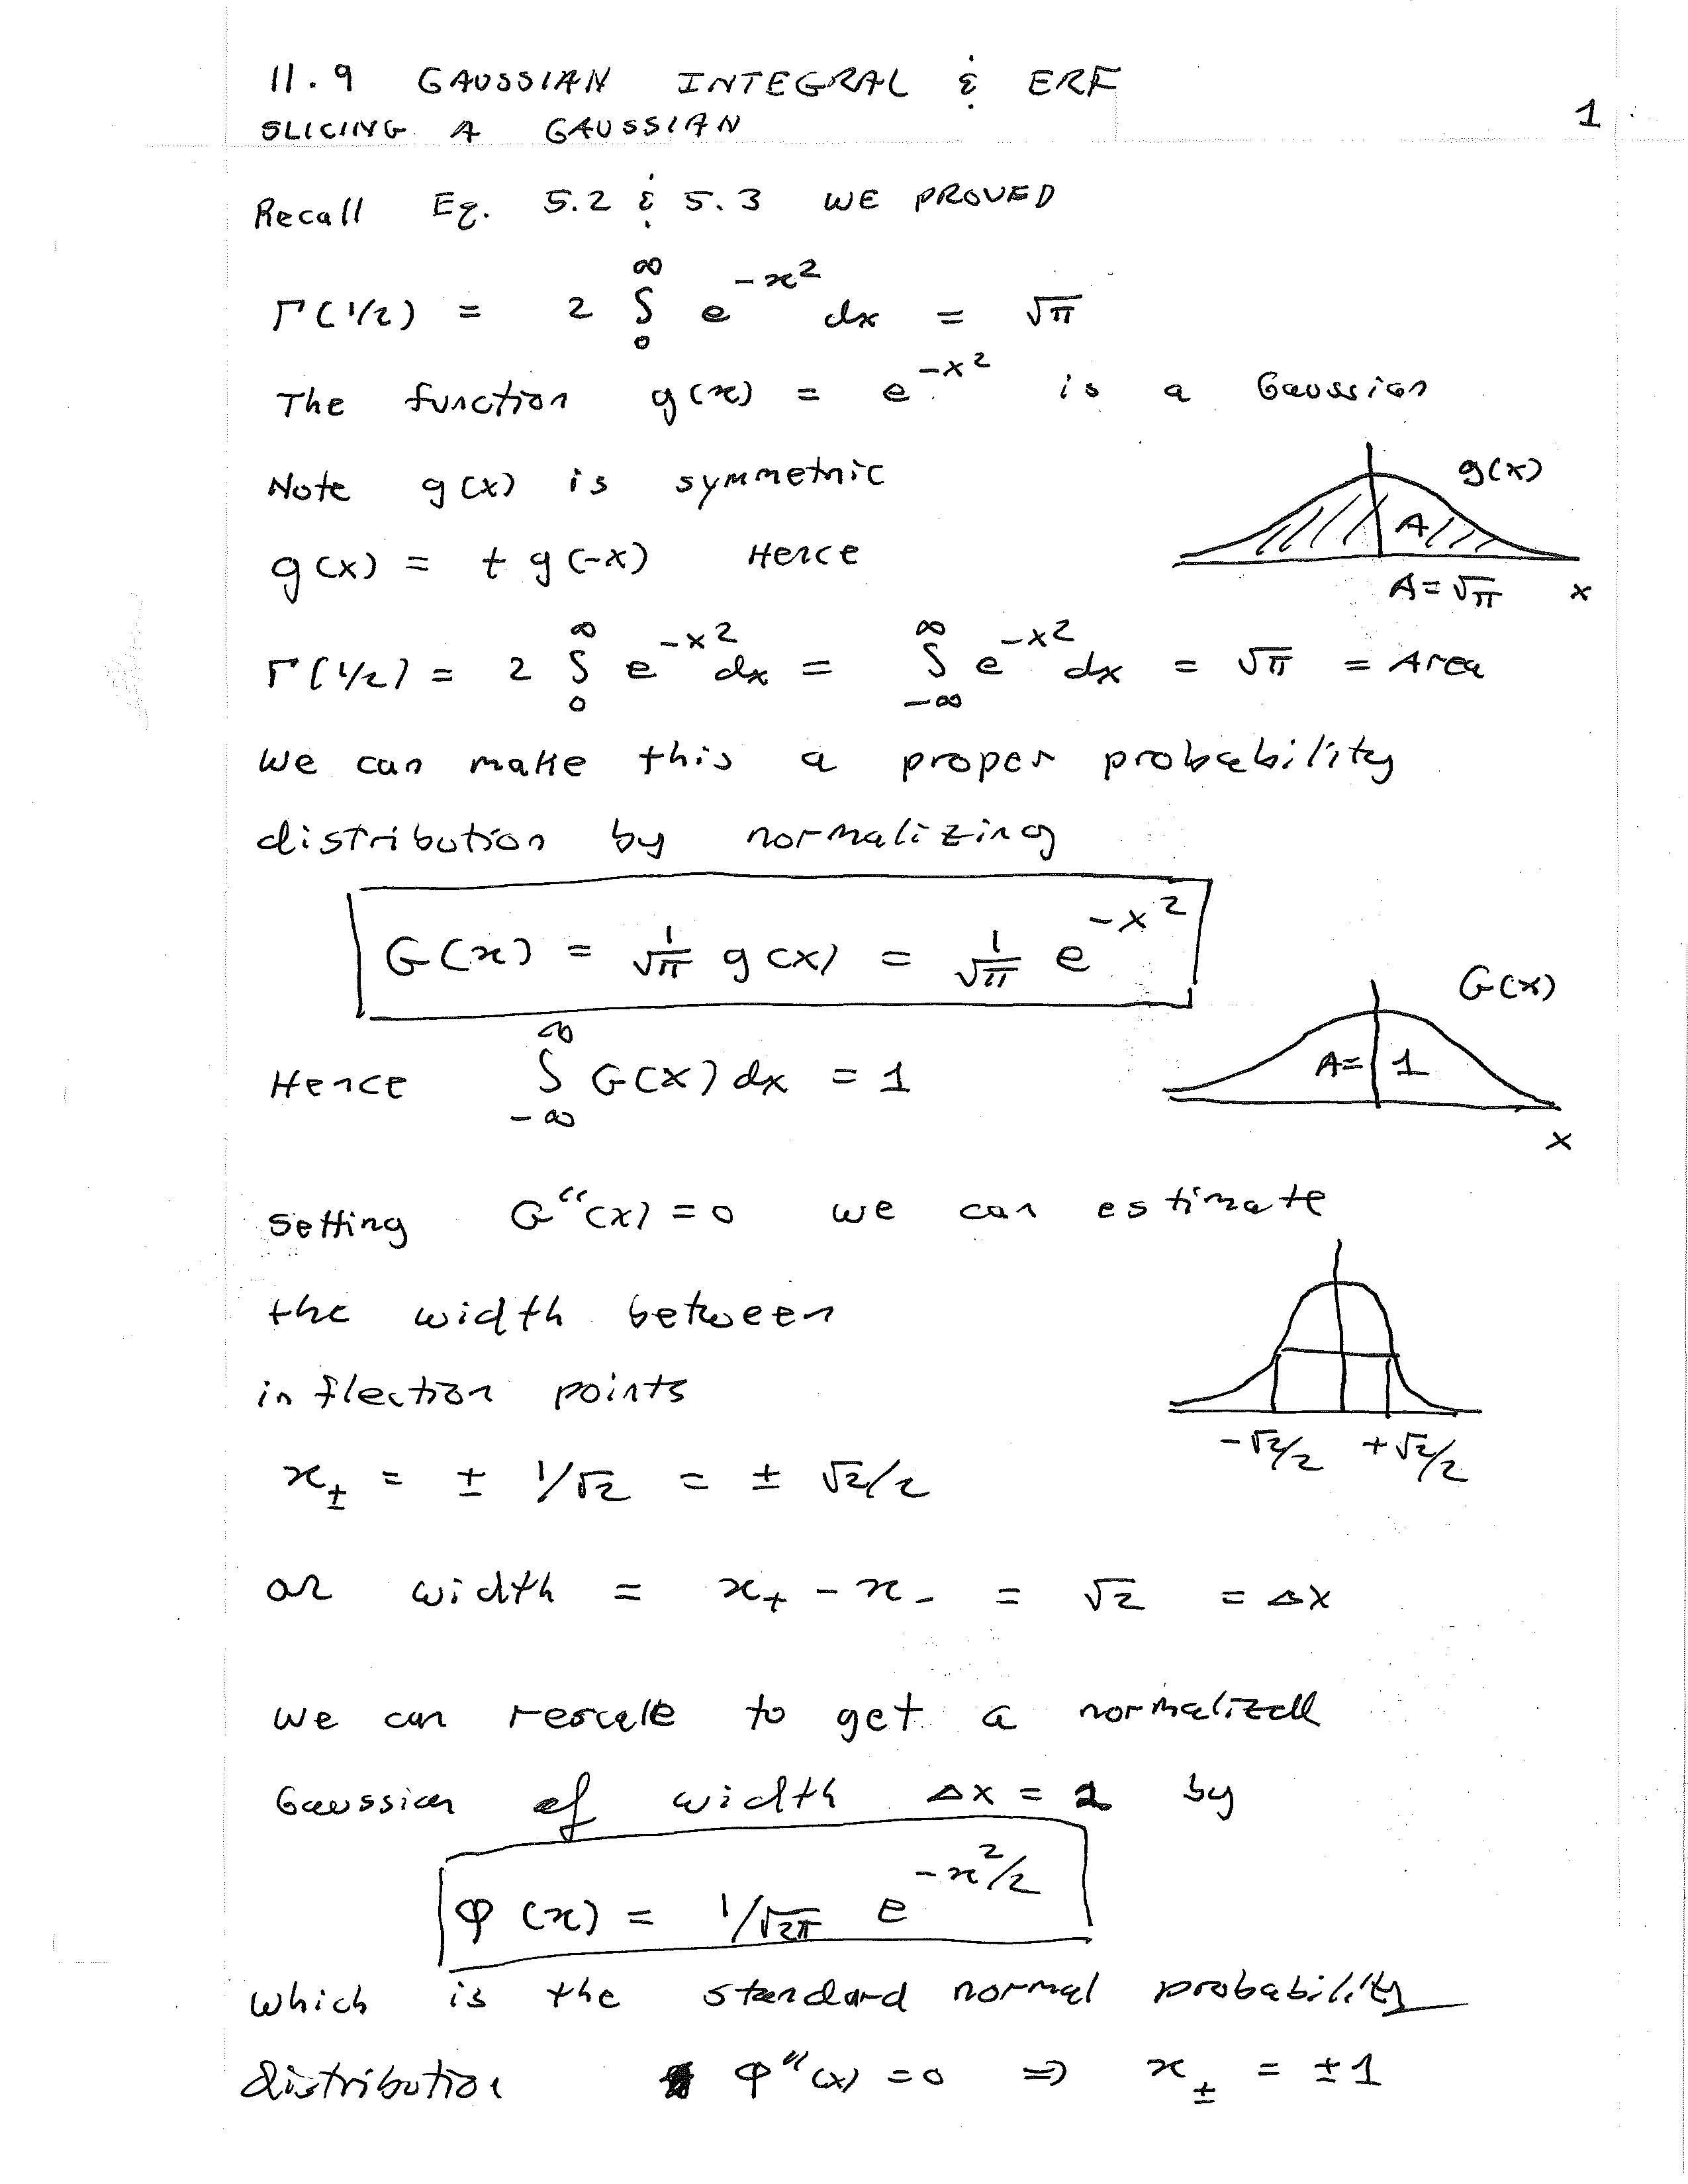 11.9 GAUSSIAN INTEGRAL & ERF
SLICING A GAUSSIAN
1
Recall Eq. 5.2 & 5.3 WE PROVED
Γ(1/2) = 2 ∫₀^∞ e^{-x²} dx = √π
The function g(x) = e^{-x²} is a Gaussian
Note g(x) is symmetric
g(x)
A
g(x) = + g(-x) Hence
A = √π x
Γ(1/2) = 2 ∫₀^∞ e^{-x²} dx = ∫_{-∞}^∞ e^{-x²} dx = √π = Area
We can make this a proper probability
distribution by normalizing
G(x) = 1/√π g(x) = 1/√π e^{-x²}
G(x)
Hence ∫_{-∞}^∞ G(x) dx = 1
A = 1
x
Setting G"(x) = 0 we can estimate
the width between
inflection points
-√2/2 +√2/2
x± = ± 1/√2 = ± √2/2
or width = x₊ - x₋ = √2 = Δx
We can rescale to get a normalized
Gaussian of width Δx = 2 by
φ(x) = 1/√2π e^{-x²/2}
which is the standard normal probability
distribution φ"(x) = 0 ⇒ x± = ±1